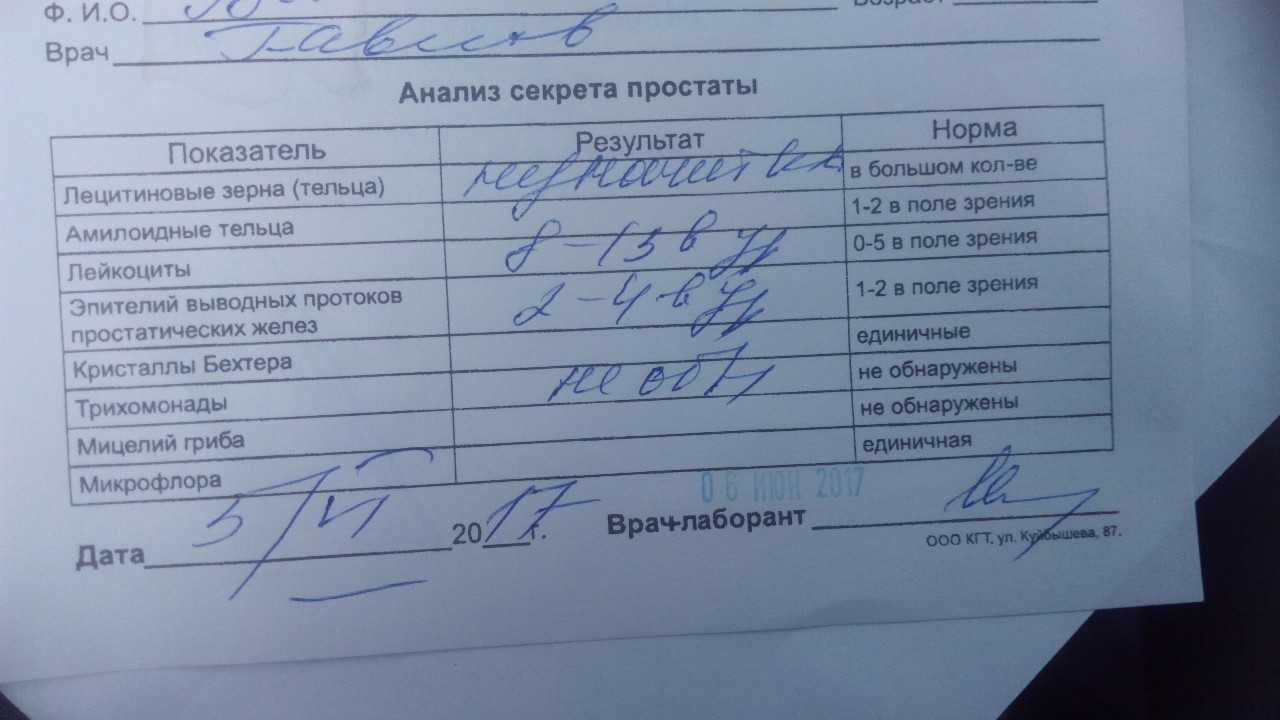 Ф. И.О.
Врач
Анализ секрета простаты
Показатель Результат Норма
Лецитиновые зерна (тельца) в большом кол-ве
Амилоидные тельца 1-2 в поле зрения
Лейкоциты 8-15 в 0-5 в поле зрения
Эпителий выводных протоков
простатических желез 2-4 в 1-2 в поле зрения
Кристаллы Бехтера единичные
Трихомонады не обн не обнаружены
Мицелий гриба не обнаружены
Микрофлора единичная
06 ИЮН 2017
Дата 5/VI 2017 г. Врач-лаборант
ООО КГТ, ул. Куйбышева, 87.